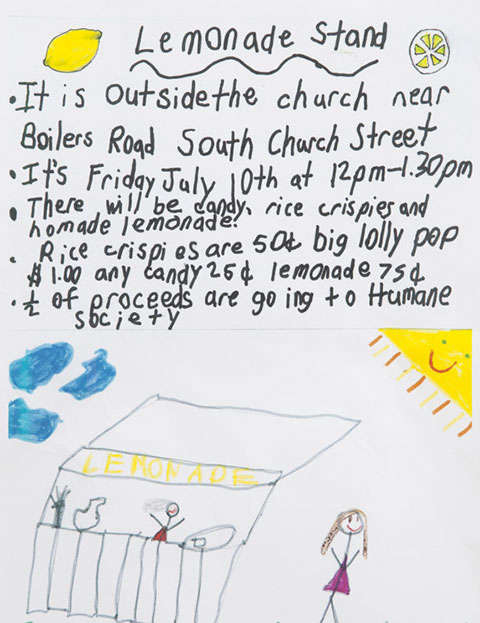 Lemonade Stand
• It is Outside the church near
Boilers Road South Church Street
• It's Friday July 10th at 12pm-1.30pm
• There will be candy, rice crispies and
homade lemonade!
• Rice crispies are 50¢ big lolly pop
$1.00 any candy 25¢ lemonade 75¢
• ½ of proceeds are going to Humane
society
LEMONADE